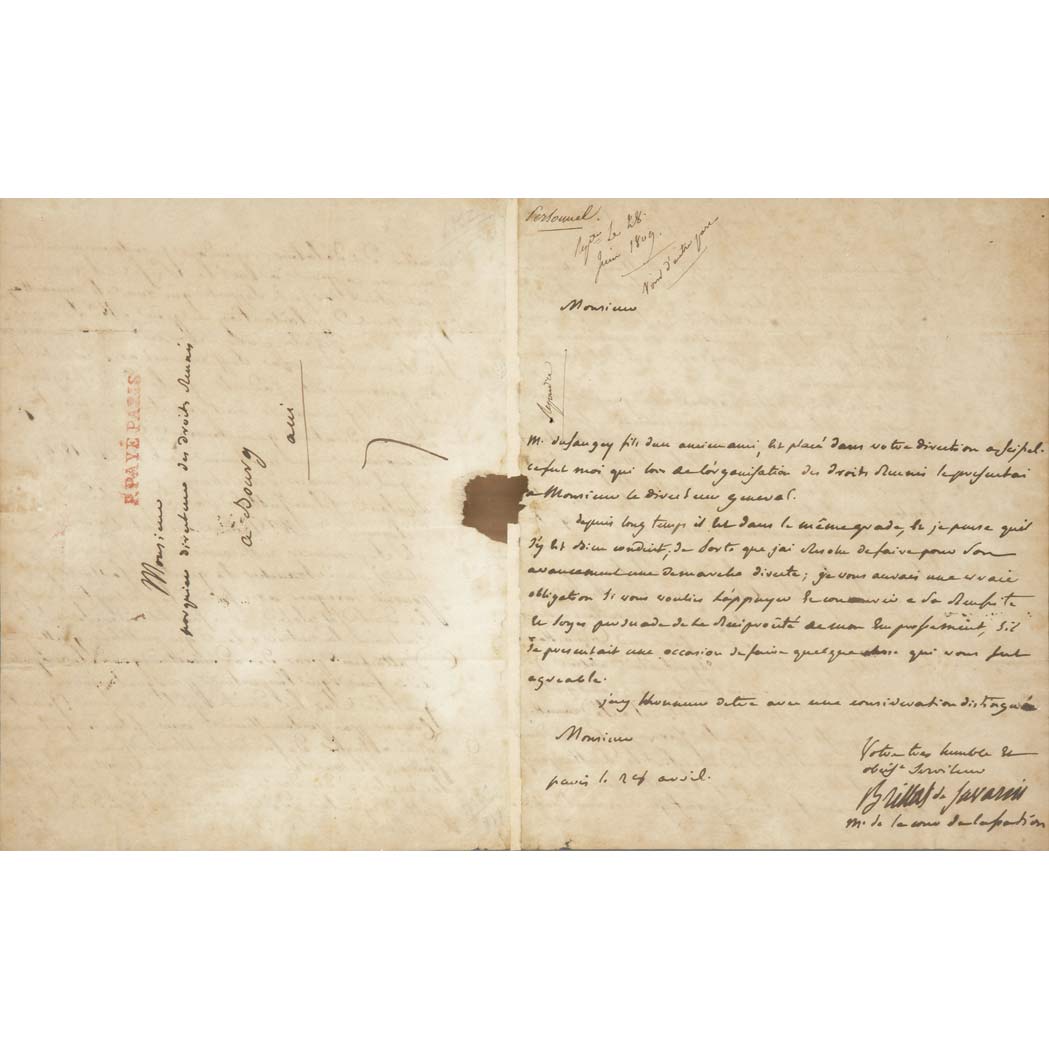 P.PAYÉ PARIS
Monsieur
directeur des droits réunis
a Bourg
ain
Personnel.
Le 28
Juin 1809.
Monsieur
Répondre
M. dusaugey fils d'un ancien ami, est placé dans votre direction a
ce fut moi qui lors de l'organisation des droits réunis le presentai
a Monsieur le directeur general.
depuis long temps il est dans le même grade, & je pense qu'il
s'y est bien conduit, de sorte que j'ai résolu de faire pour son
avancement une demarche directe; je vous aurais une vraie
obligation si vous vouliez l'appuyer & concourir a sa réussite
& soyez persuadé de la réciprocité de mon empressement, s'il
se presentait une occasion de faire quelque chose qui vous fut
agreable.
j'ay l'honneur detre avec une consideration distinguée
Monsieur
paris le avril.
Votre tres humble &
obeist serviteur
Brillat de Savarin
m. de la cour de cassation